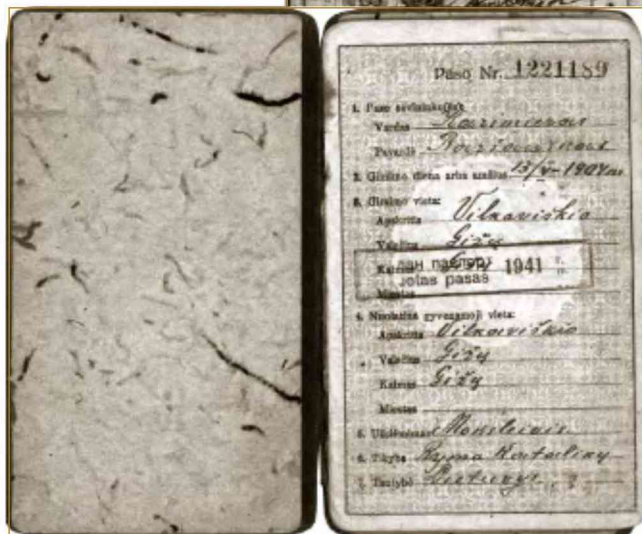 Paso Nr. 1221189
1. Paso savininko(ės):
Vardas Kazimieras
Pavardė
2. Gimimo diena arba amžius 13/V-1907 m
3. Gimimo vieta:
Apskritis Vilkaviškio
Valsčius Gižų
Kaimas Gižų
ан паспорт 1941 г.
uotas pasas
Miestas
4. Nuolatinė gyvenamoji vieta:
Apskritis Vilkaviškio
Valsčius Gižų
Kaimas Gižų
Miestas
5. Užsiėmimas
6. Tikyba Rymo Katalikų
7. Tautybė Lietuvys